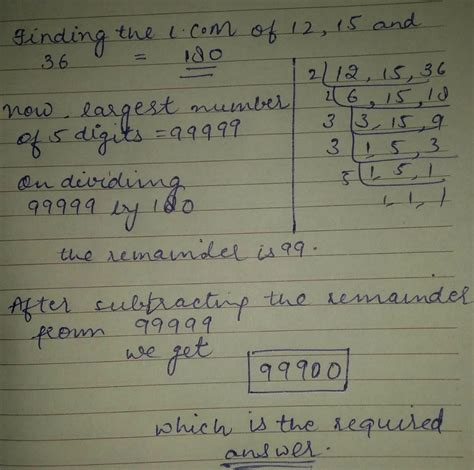 Finding the L.C.M of 12, 15 and
36 = 180
2 | 12, 15, 36
2 | 6, 15, 18
3 | 3, 15, 9
3 | 1, 5, 3
5 | 1, 5, 1
1, 1, 1
Now, largest number
of 5 digits = 99999
On dividing
99999 by 180
the remainder is 99.
After subtracting the remainder
from 99999
we get
99900
which is the required
answer.